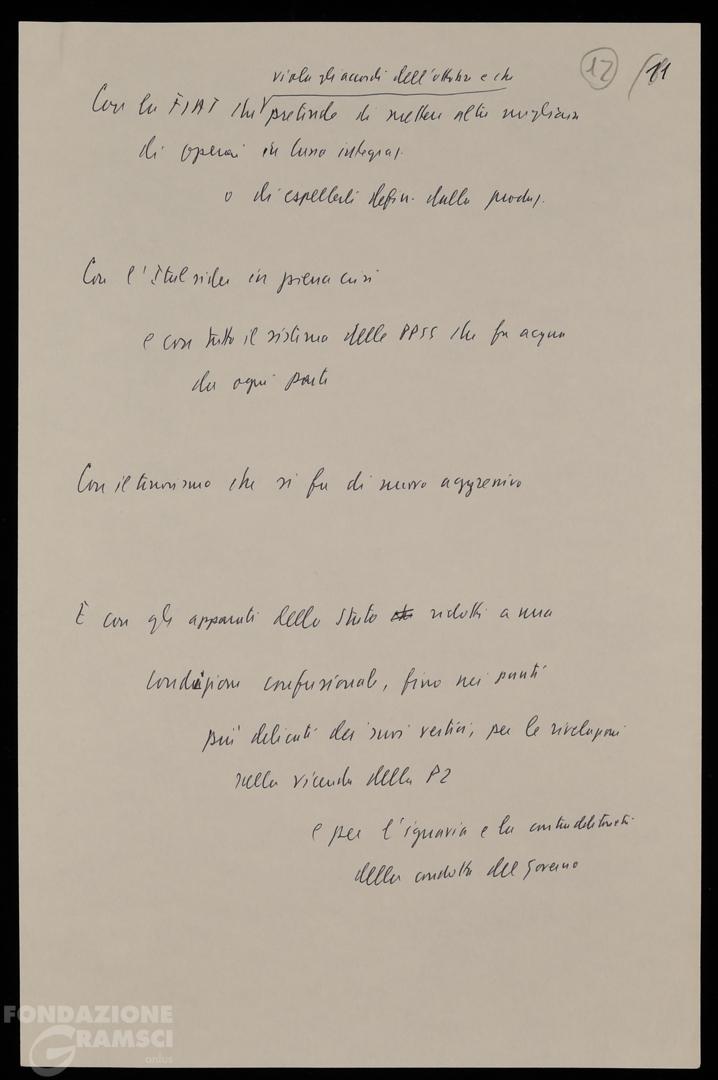 12 11
viola gli accordi dell'ottobre e che
Con la FIAT che pretende di mettere altre migliaia
di operai in Cassa integraz.
o di espellerli defin. dalla produz.
Con l'Italsider in piena crisi
e con tutto il sistema delle PPSS che fa acqua
da ogni parte
Con il terrorismo che si fa di nuovo aggressivo
E con gli apparati dello Stato ridotti a una
condizione confusionale, fino nei punti
più delicati dei suoi vertici, per le rivelazioni
sulla vicenda della P2
e per l'ignavia e la contraddittorietà
della condotta del Governo
FONDAZIONE
GRAMSCI
onlus